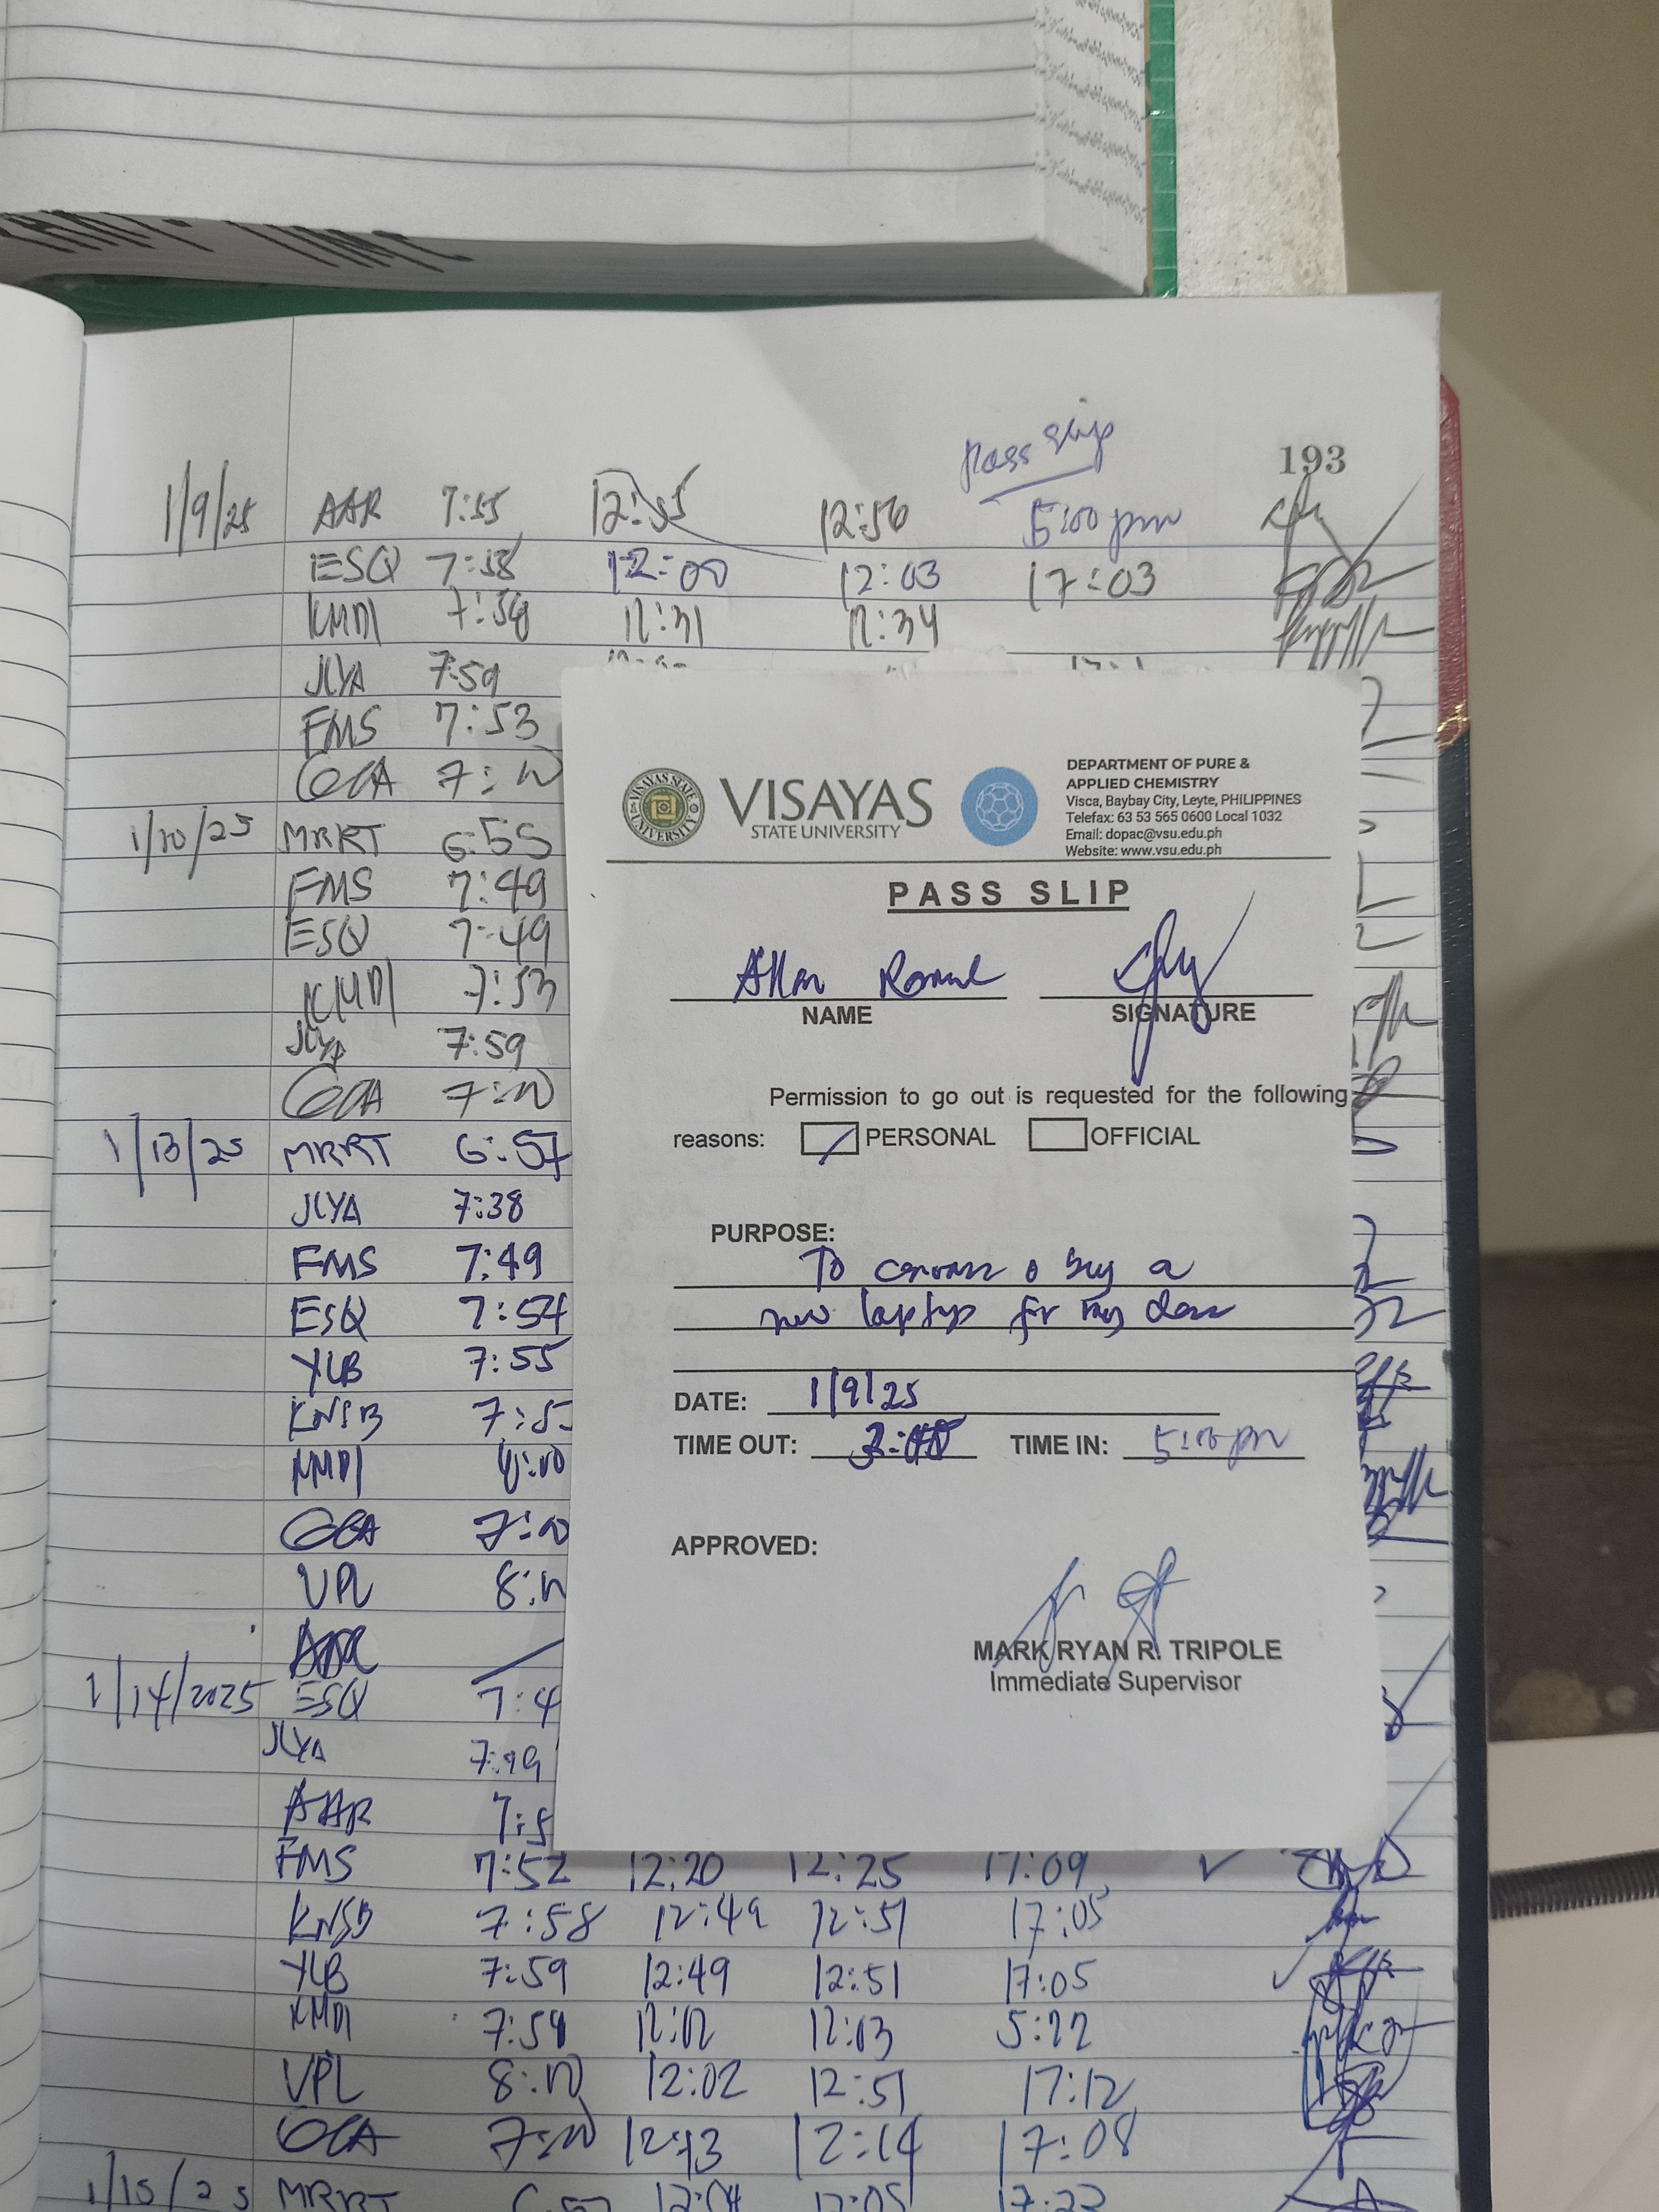 pass slip
193
1/9/25 AAR 7:55 12:55 12:56 5:00 pm
ESQ 7:58 12:00 12:03 17:03
KMDI 7:58 12:31 12:34
JLYA 7:59
FMS 7:53
GCA 7:00
1/10/25 MRRT 6:55
FMS 7:49
ESQ 7:49
KMDI 7:53
JLYA 7:59
GCA 7:00
1/13/25 MRRT 6:57
JLYA 7:38
FMS 7:49
ESQ 7:54
YLB 7:55
KNSB 7:5
GCA 7:00
VPL 8:
1/14/2025 ESQ 7:4
JLYA 7:49
AAR 7:5
FMS 7:52 12:20 12:25 17:09
KNSB 7:58 12:49 12:51 17:05
YLB 7:59 12:49 12:51 17:05
KMDI 7:59 12:02 12:03 5:22
VPL 8:00 12:02 12:51 17:12
GCA 7:00 12:13 12:14 17:08
1/15/25 MRRT
VISAYAS
STATE UNIVERSITY
VISAYAS STATE UNIVERSITY
DEPARTMENT OF PURE &
APPLIED CHEMISTRY
Visca, Baybay City, Leyte, PHILIPPINES
Telefax: 63 53 565 0600 Local 1032
Email: dopac@vsu.edu.ph
Website: www.vsu.edu.ph
PASS SLIP
Allan
NAME SIGNATURE
Permission to go out is requested for the following
reasons: PERSONAL OFFICIAL
PURPOSE:
To canvass & buy a
new laptop for my
DATE: 1/9/25
TIME OUT: TIME IN: 5:00 pm
APPROVED:
MARK RYAN R. TRIPOLE
Immediate Supervisor